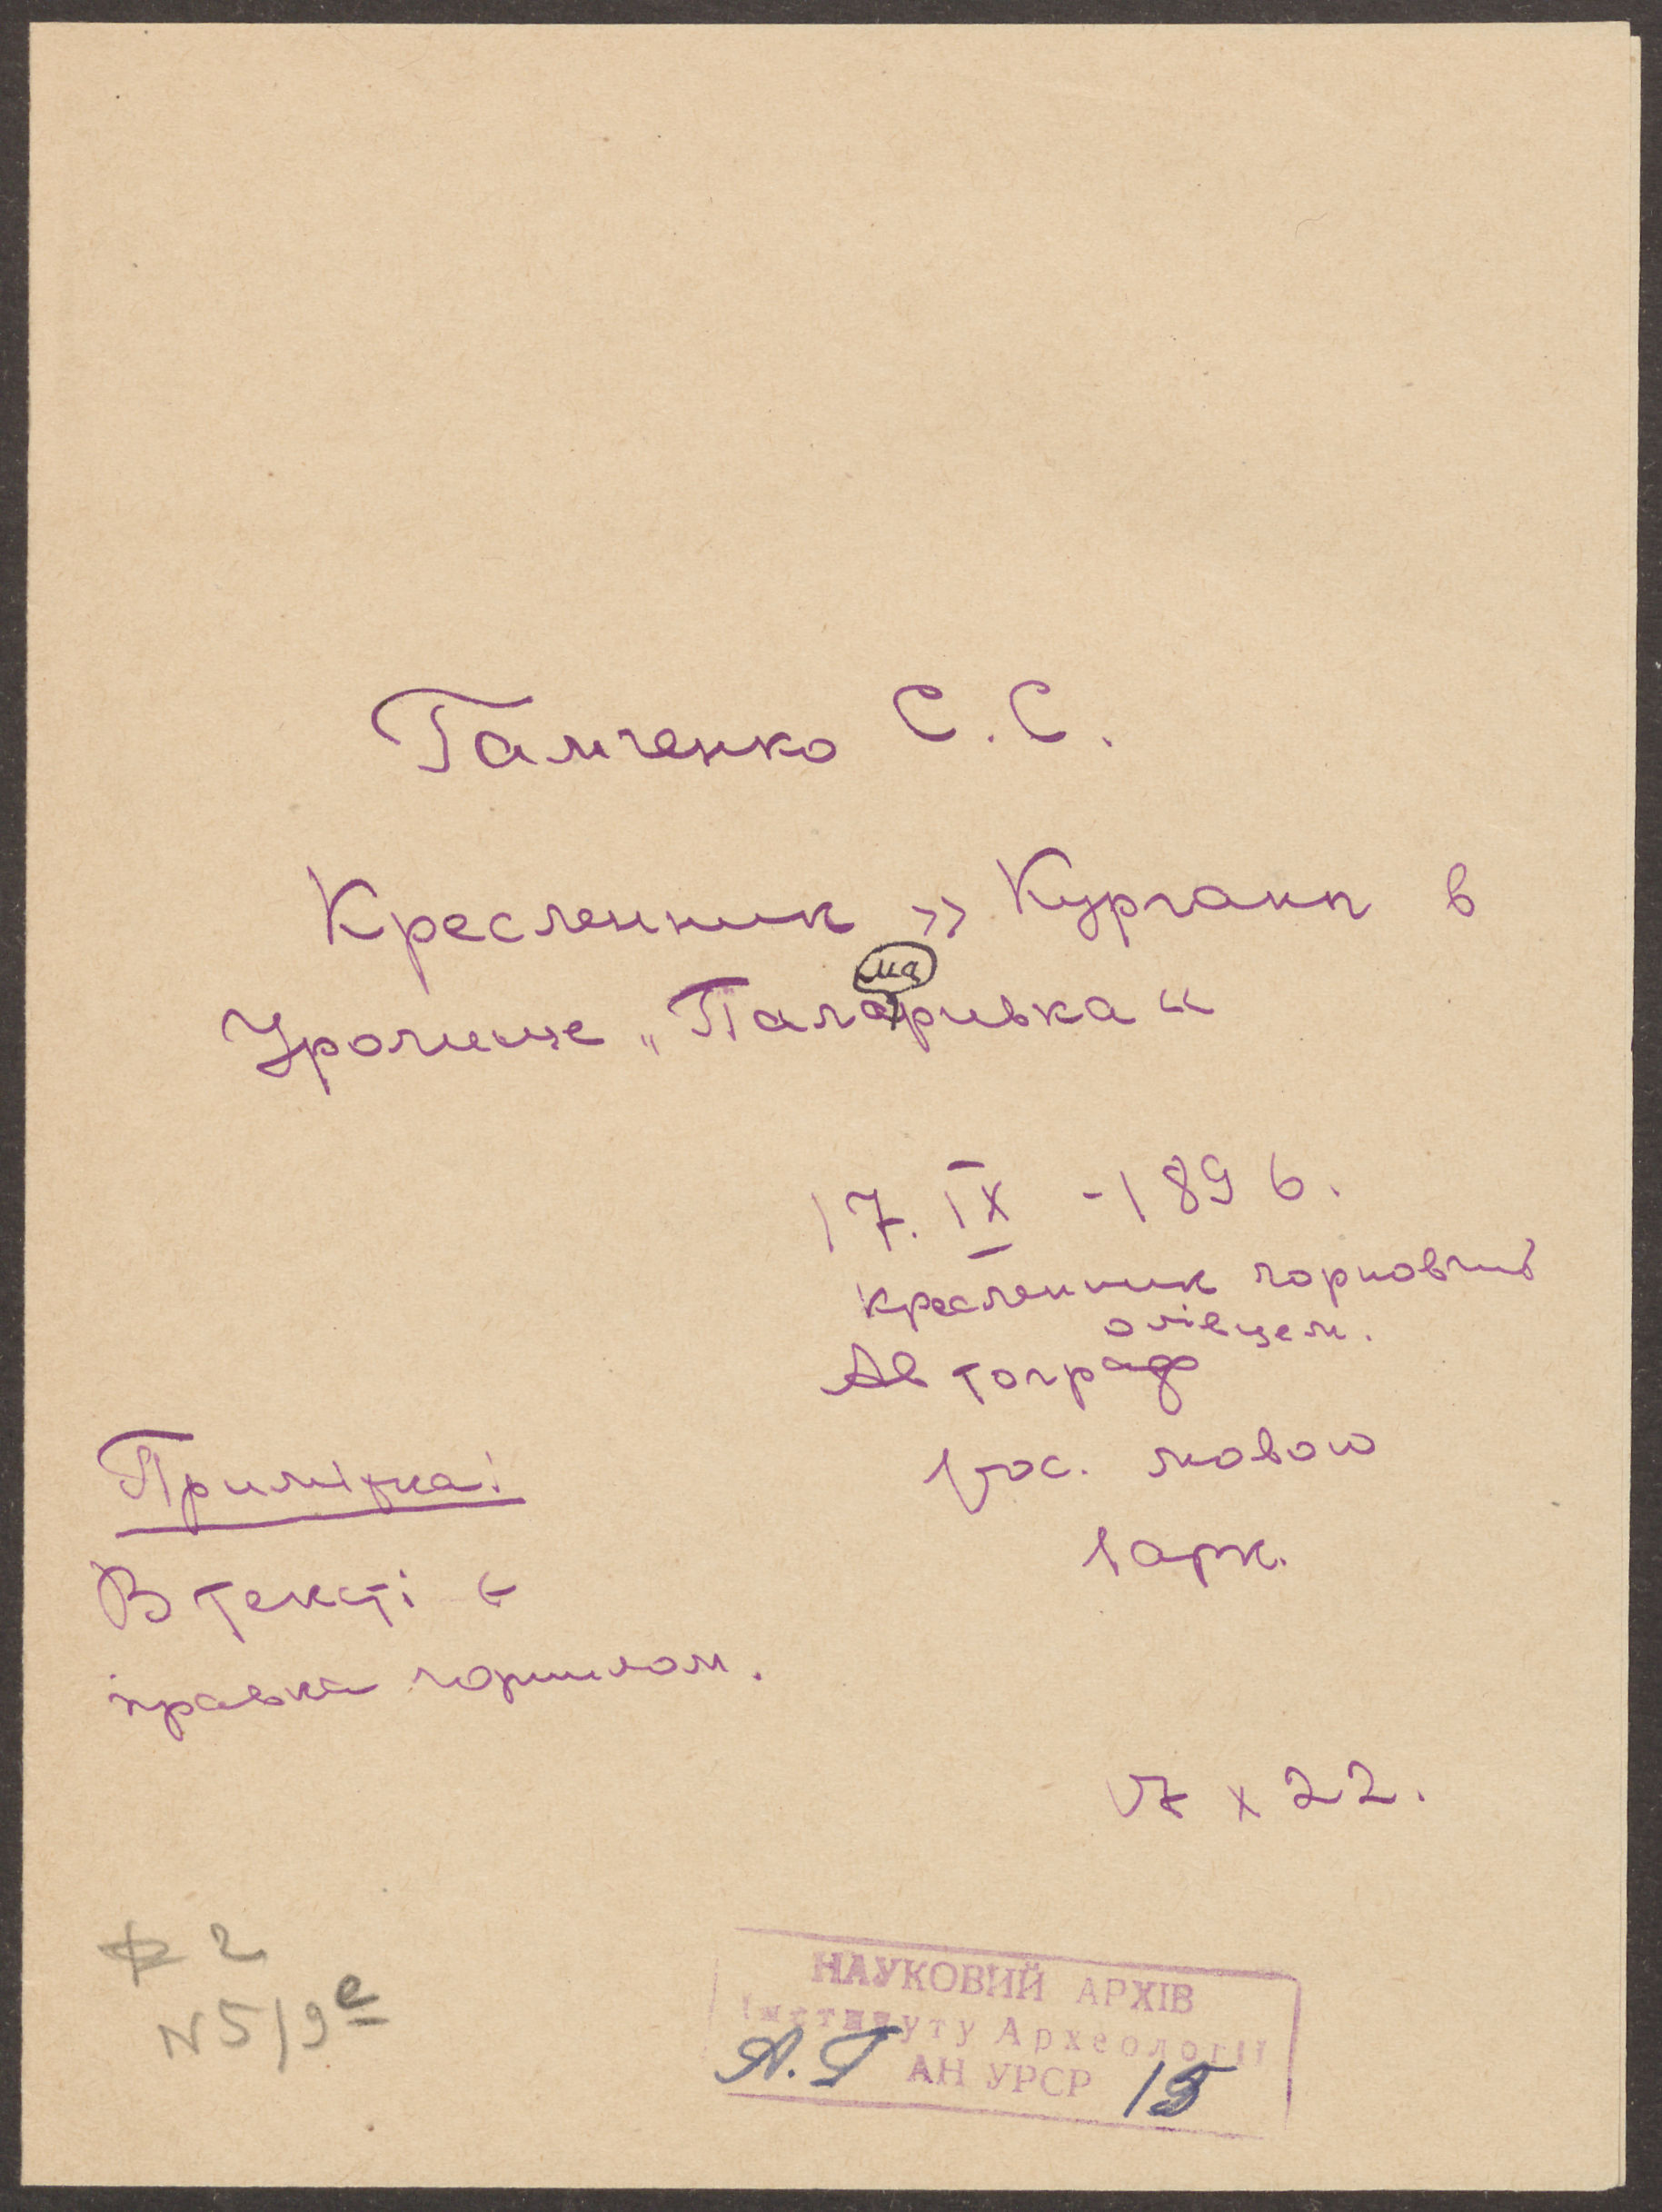 Гамченко С.С.
Кресленник „Кургани в
ма
Урочище „Паларивка“
17. IX - 1896.
кресленник чорновий
олівцем.
Автограф
рос. мовою
1 арк.
Примітка:
В тексті є
правка чорнилом.
17 x 22.
Ф 2
N 5/9е
НАУКОВИЙ АРХІВ
Інституту Археології
АН УРСР
А.Г 15